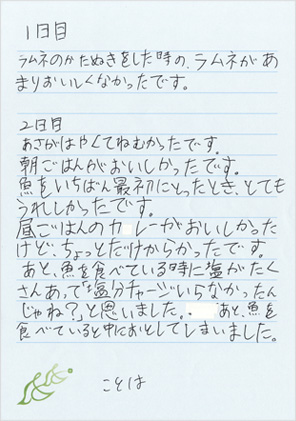 1日目
ラムネのかたぬきをした時の、ラムネがあ
まりおいしくなかったです。
2日目
あさがはやくてねむかったです。
朝ごはんがおいしかったです。
魚をいちばん最初にとったとき、とても
うれしかったです。
昼ごはんのカレーがおいしかった
けど、ちょっとだけからかったです。
あと、魚を食べている時に塩がたく
さんあって「塩分チャージいらなかったん
じゃね?」と思いました。あと、魚を
食べていると中におとしてしまいました。
ことは